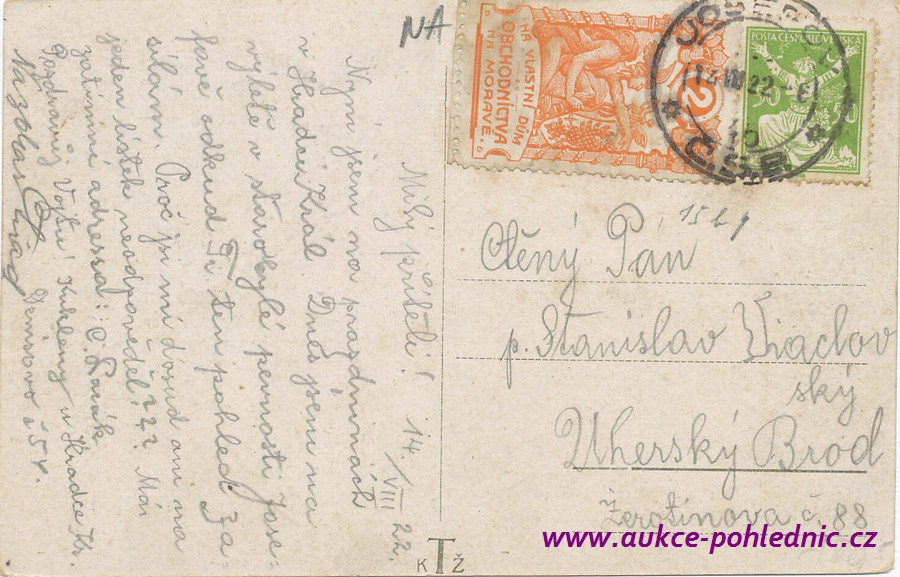 NA
NA VLASTNÍ DŮM
OBCHODNICTVA
NA MORAVĚ.
2
POŠTA ČESKOSLOVENSKÁ
14 VIII 22
10
ČSR
Milý příteli! 14/VIII 22.
Nyní jsem na prazdninách
v Hradci Král. Dnes jsem na
výletě v starobylé pevnosti Jose-
fově odkud Ti ten pohled za-
sílám. Proč jsi mi dosud ani na
jeden lístek neodpověděl??? Má
zatímní adressa:
Kukleny u Hradce Kr.
Pozdravuj
Nazdar
1521
Ctěný Pán
p. Stanislav Viaclov
ský
Uherský Brod
Žerotínova č. 88
K T Ž
www.aukce-pohlednic.cz